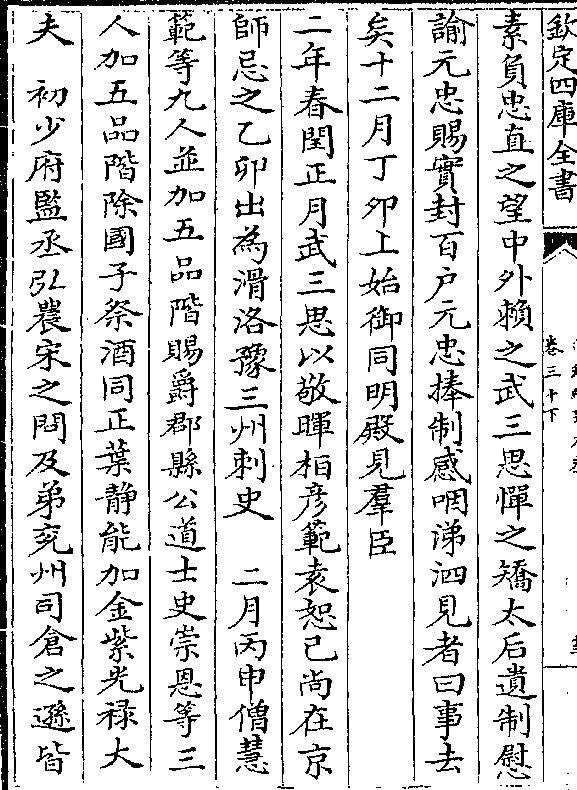 欽定四庫全書
卷三十下
素負忠直之望中外賴之武三思憚之矯太后遺制慰
諭元忠賜實封百户元忠捧制感咽涕泗見者曰事去
矣十二月丁卯上始御同明殿見羣臣
二年春閏正月武三思以敬暉桓彦範袁恕己尚在京
師忌之乙卯出為滑洺豫三州刺史　二月丙申僧慧
範等九人並加五品階賜爵郡縣公道士史崇恩等三
人加五品階除國子祭酒同正葉静能加金紫光禄大
夫　初少府監丞弘農宋之問及弟兗州司倉之遜皆